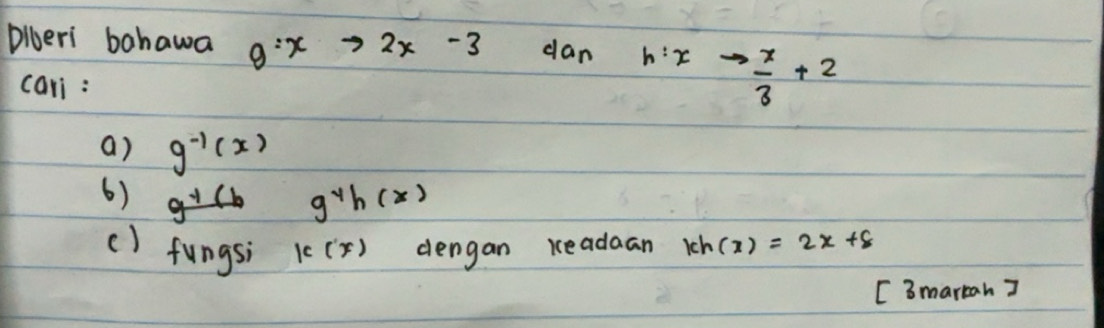 Diberi bahawa g : x → 2x - 3 dan h : x → x/3 + 2
cari :
a) g⁻¹(x)
b) g⁻¹h(x)
c) fungsi k(x) dengan keadaan kh(x) = 2x +8
[ 3 markah ]